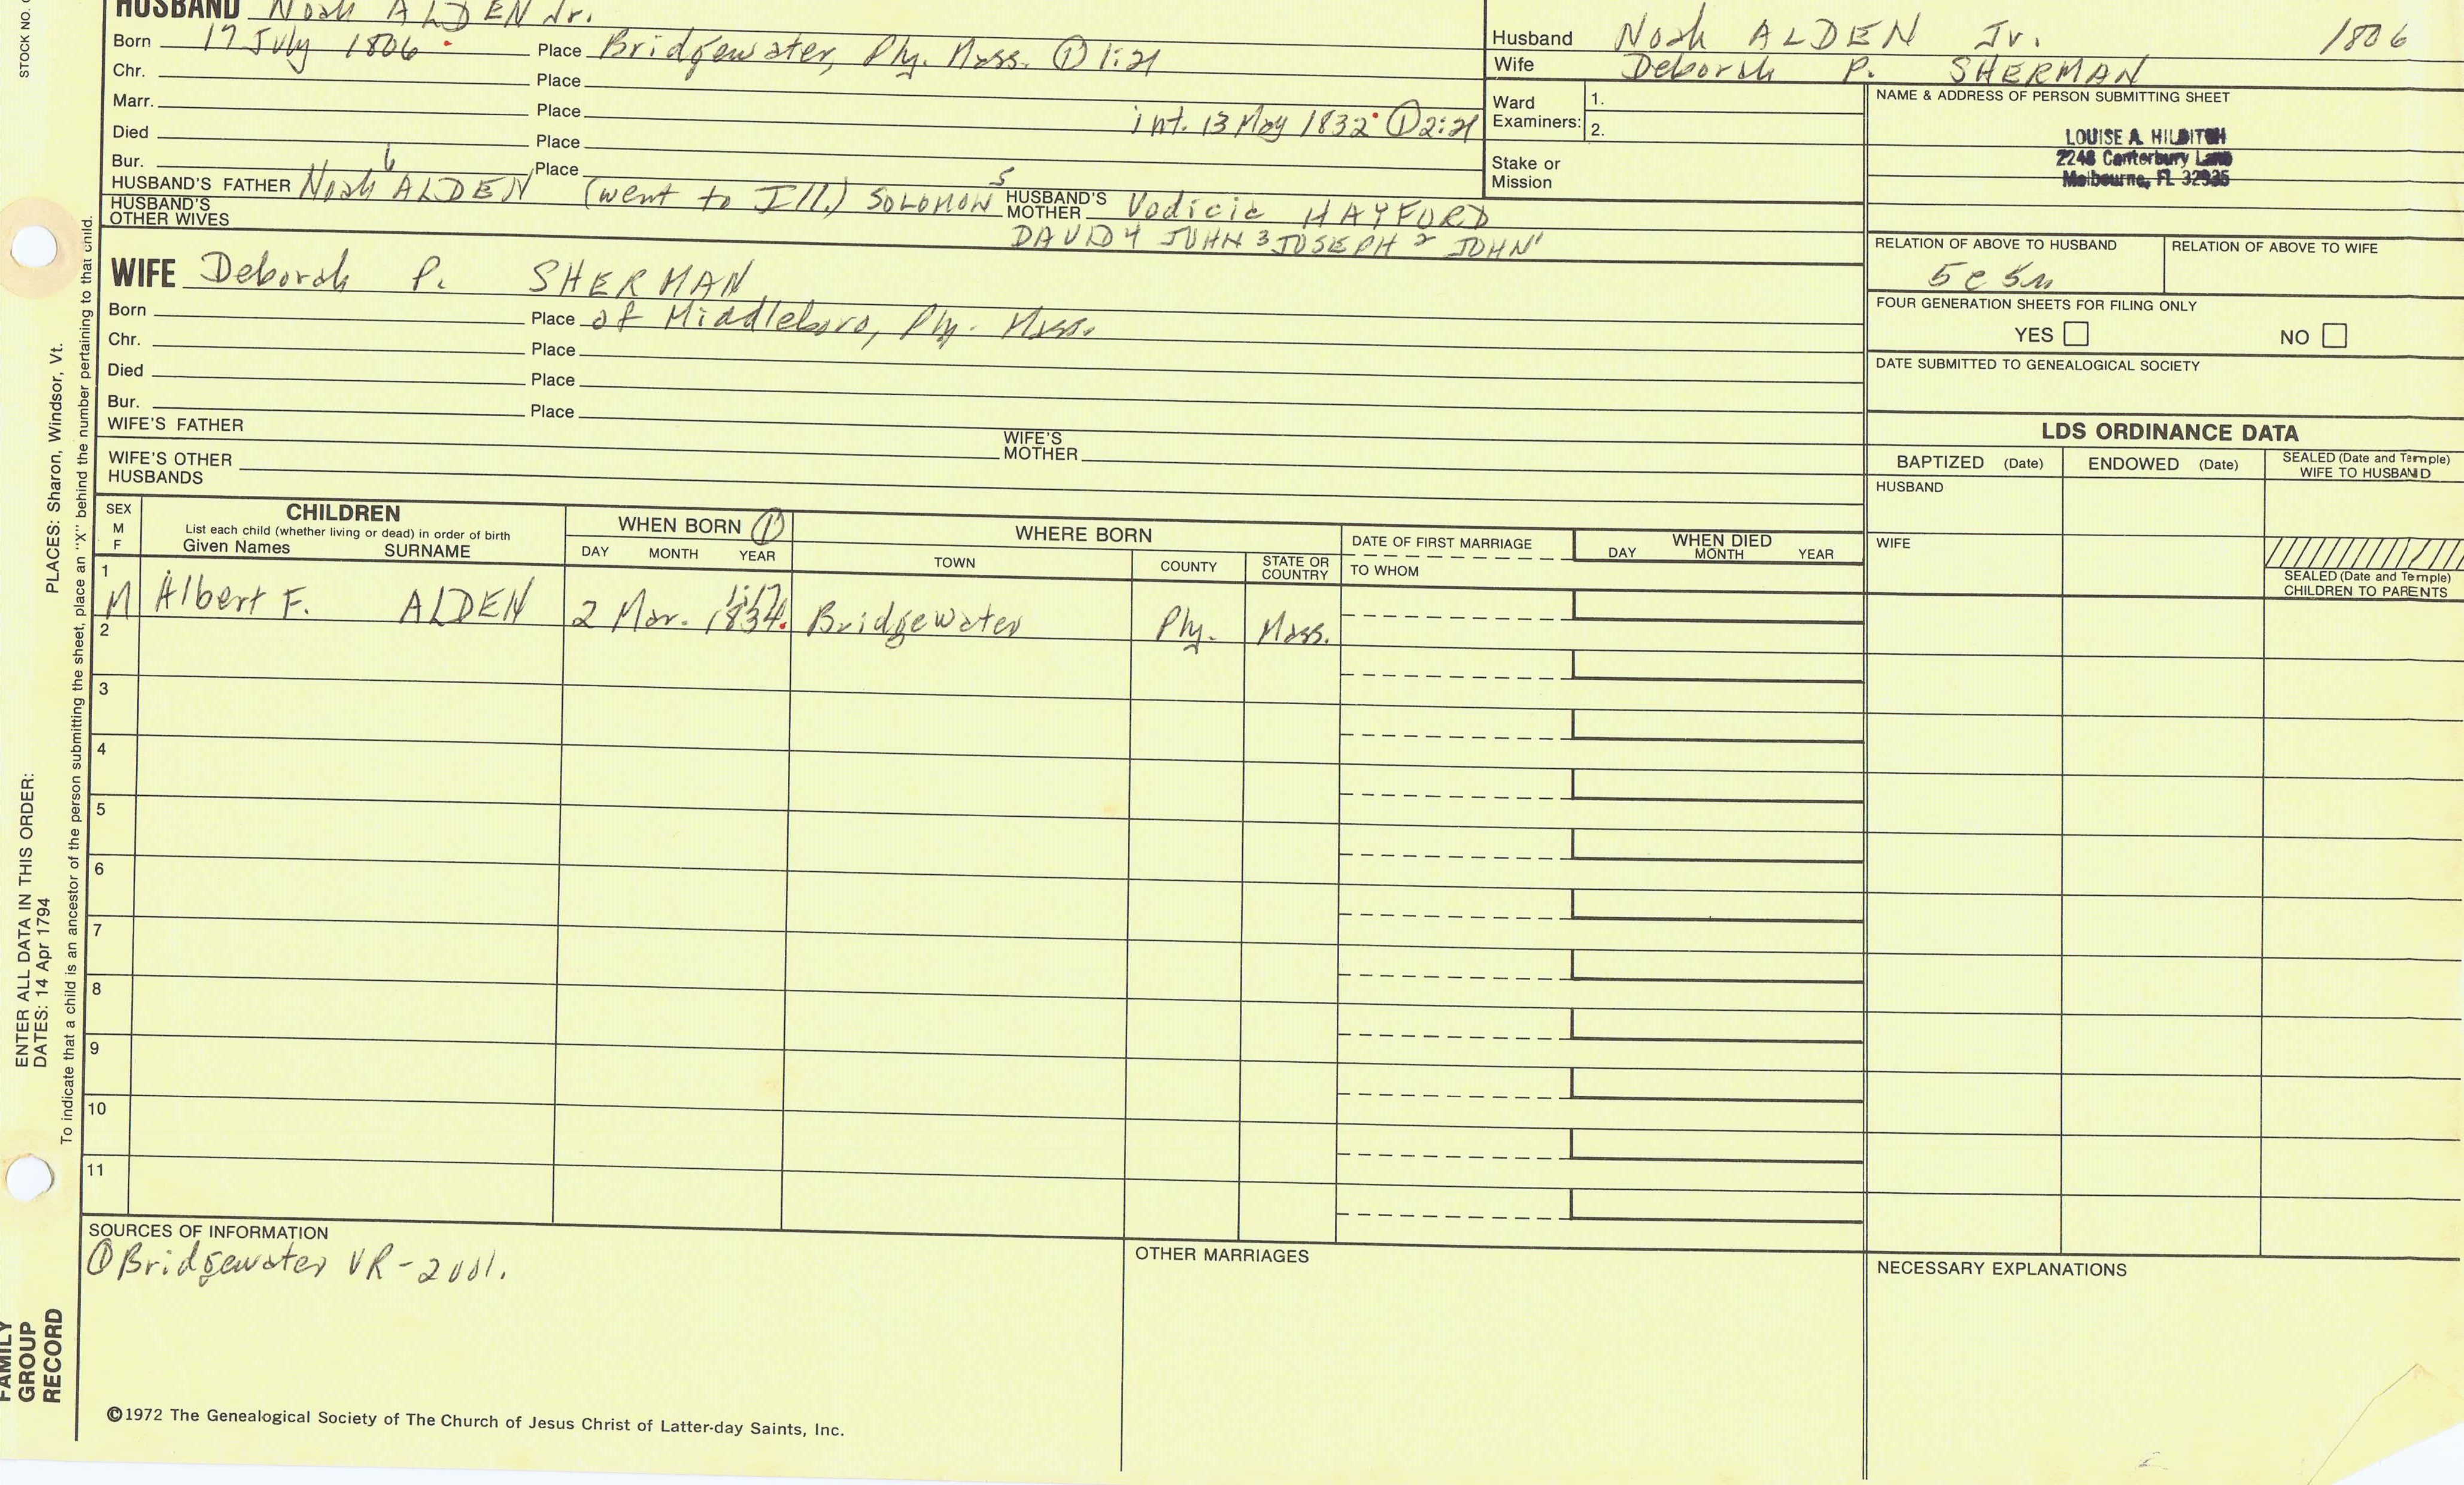 STOCK NO.
HUSBAND Noah ALDEN Jr.
Born 17 July 1806 Place Bridgewater, Ply. Mass. ① 1:21
Chr. Place
Marr. Place int. 13 May 1832 ① 2:21
Died Place
Bur. Place
HUSBAND'S FATHER Noah 6 ALDEN (went to Ill.) SOLOMON 5 HUSBAND'S MOTHER Vodicia HAYFORD
HUSBAND'S OTHER WIVES DAVID 4 JOHN 3 JOSEPH 2 JOHN 1
WIFE Deborah P. SHERMAN
Born Place of Middleboro, Ply. Mass.
Chr. Place
Died Place
Bur. Place
WIFE'S FATHER WIFE'S MOTHER
WIFE'S OTHER HUSBANDS
Husband Noah ALDEN Jr. 1806
Wife Deborah P. SHERMAN
Ward Examiners: 1.
2.
Stake or Mission
NAME & ADDRESS OF PERSON SUBMITTING SHEET
LOUISE A. HILDITCH
2248 Canterbury Lane
Melbourne, FL 32935
RELATION OF ABOVE TO HUSBAND RELATION OF ABOVE TO WIFE
5c 5r
FOUR GENERATION SHEETS FOR FILING ONLY
YES NO
DATE SUBMITTED TO GENEALOGICAL SOCIETY
LDS ORDINANCE DATA
BAPTIZED (Date) ENDOWED (Date) SEALED (Date and Temple) WIFE TO HUSBAND
HUSBAND
WIFE
SEALED (Date and Temple) CHILDREN TO PARENTS
SEX M F
CHILDREN
List each child (whether living or dead) in order of birth
Given Names SURNAME
WHEN BORN ①
DAY MONTH YEAR
WHERE BORN
TOWN COUNTY STATE OR COUNTRY
DATE OF FIRST MARRIAGE
TO WHOM
WHEN DIED
DAY MONTH YEAR
1
M Albert F. ALDEN 2 Mar. 1834. 1:17 Bridgewater Ply. Mass.
2
3
4
5
6
7
8
9
10
11
SOURCES OF INFORMATION
① Bridgewater VR - 2 vol.
OTHER MARRIAGES
NECESSARY EXPLANATIONS
©1972 The Genealogical Society of The Church of Jesus Christ of Latter-day Saints, Inc.
PLACES: Sharon, Windsor, Vt.
ENTER ALL DATA IN THIS ORDER:
DATES: 14 Apr 1794
To indicate that a child is an ancestor of the person submitting the sheet, place an "X" behind the number pertaining to that child.
FAMILY
GROUP
RECORD